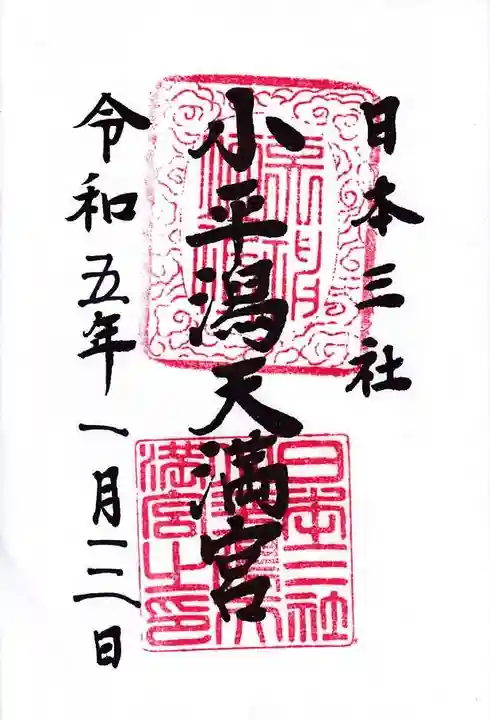 日本三社
小平潟天満宮
令和五年一月三日
日本三社
満宮之印